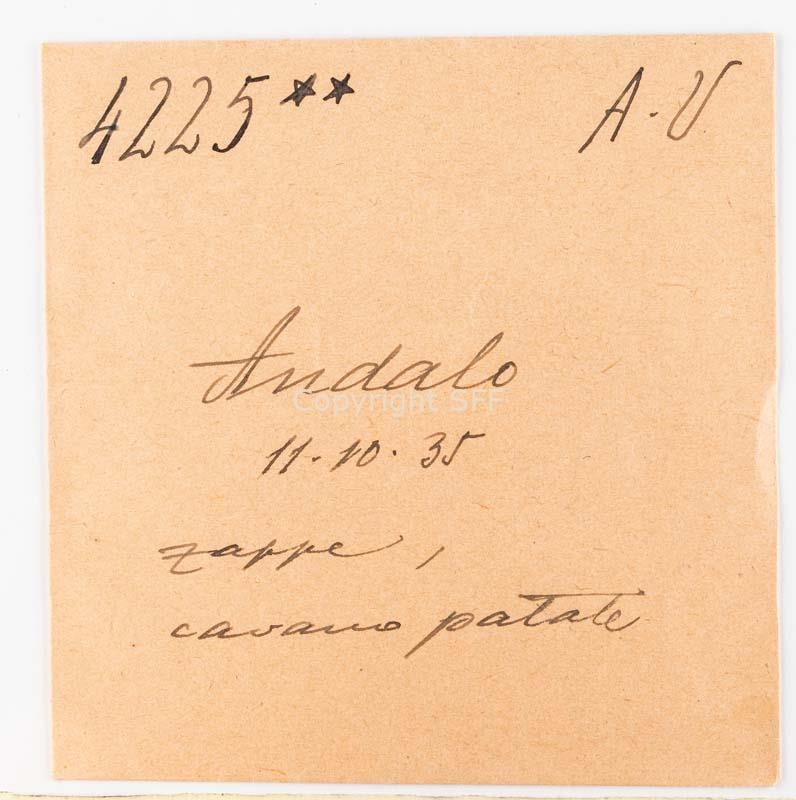 4225** A·V
Andalo
Copyright SFF
11·10·35
zappe,
cavano patate